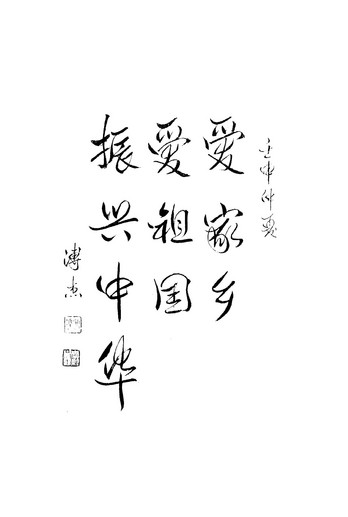 壬申仲夏
爱家乡
爱祖国
振兴中华
溥杰